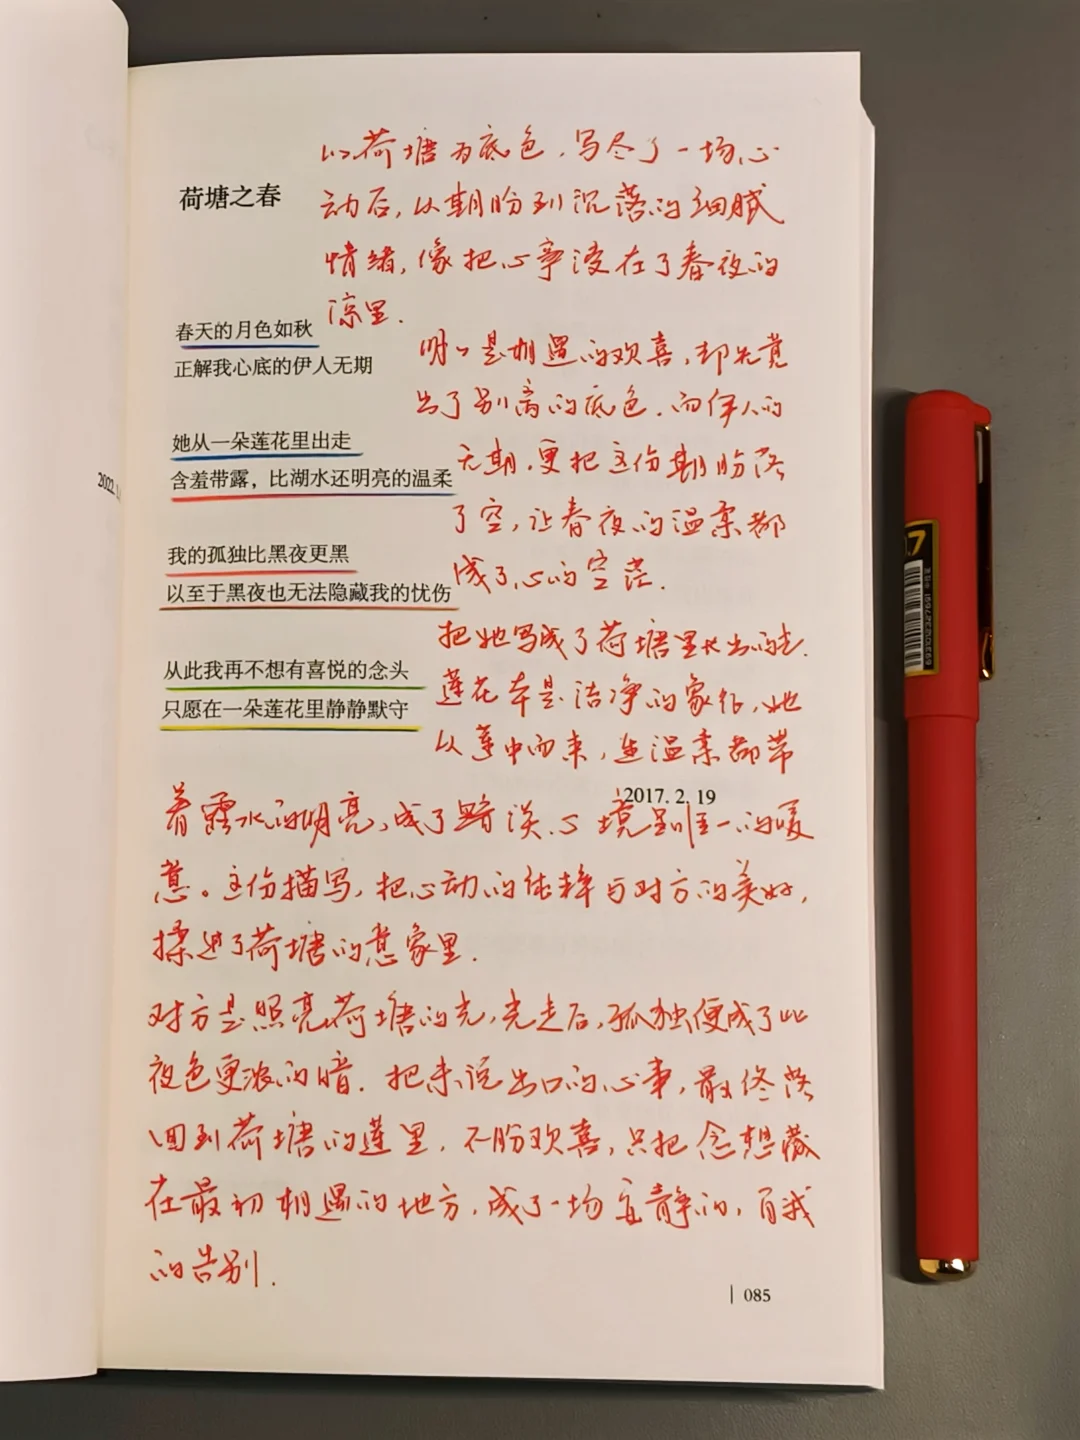 荷塘之春
以荷塘为底色，写尽了一场心
动后，从期盼到沉落的细腻
情绪，像把心事浸在了春夜的
凉里．
春天的月色如秋
正解我心底的伊人无期
她从一朵莲花里出走
含羞带露，比湖水还明亮的温柔
我的孤独比黑夜更黑
以至于黑夜也无法隐藏我的忧伤
从此我再不想有喜悦的念头
只愿在一朵莲花里静静默守
明明是相遇的欢喜，却先觉
出了别离的底色．而伊人的
无期，更把这份期盼落
了空，让春夜的温柔都
成了心的空茫．
把她写成了荷塘里长出的光．
莲花本是洁净的象征，她
从莲中而来，连温柔都带
2017.2.19
着露水的明亮，成了黯淡心境里唯一的暖
意。这份描写，把心动的依稀与对方的美好，
揉进了荷塘的意象里．
对方是照亮荷塘的光，光走后，孤独便成了比
夜色更浓的暗．把未说出口的心事，最终落
回到荷塘的莲里．不盼欢喜，只把念想藏
在最初相遇的地方，成了一场安静的，自我
的告别．
085
2022
0.7